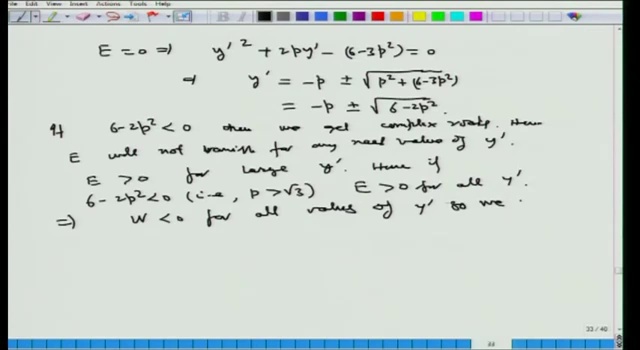 Edit View Insert Actions Tools Help
E = 0 ⇒ y'² + 2py' - (6-3p²) = 0
⇒ y' = -p ± √p² + (6-3p²)
= -p ± √6-2p².
If 6-2p² < 0 then we get complex roots. Hence
E will not vanish for any real value of y'.
E > 0 for large y'. Hence if
6-2p² < 0 (i.e., p > √3) E > 0 for all y'.
⇒ W < 0 for all value of y' so we
33 / 40
33